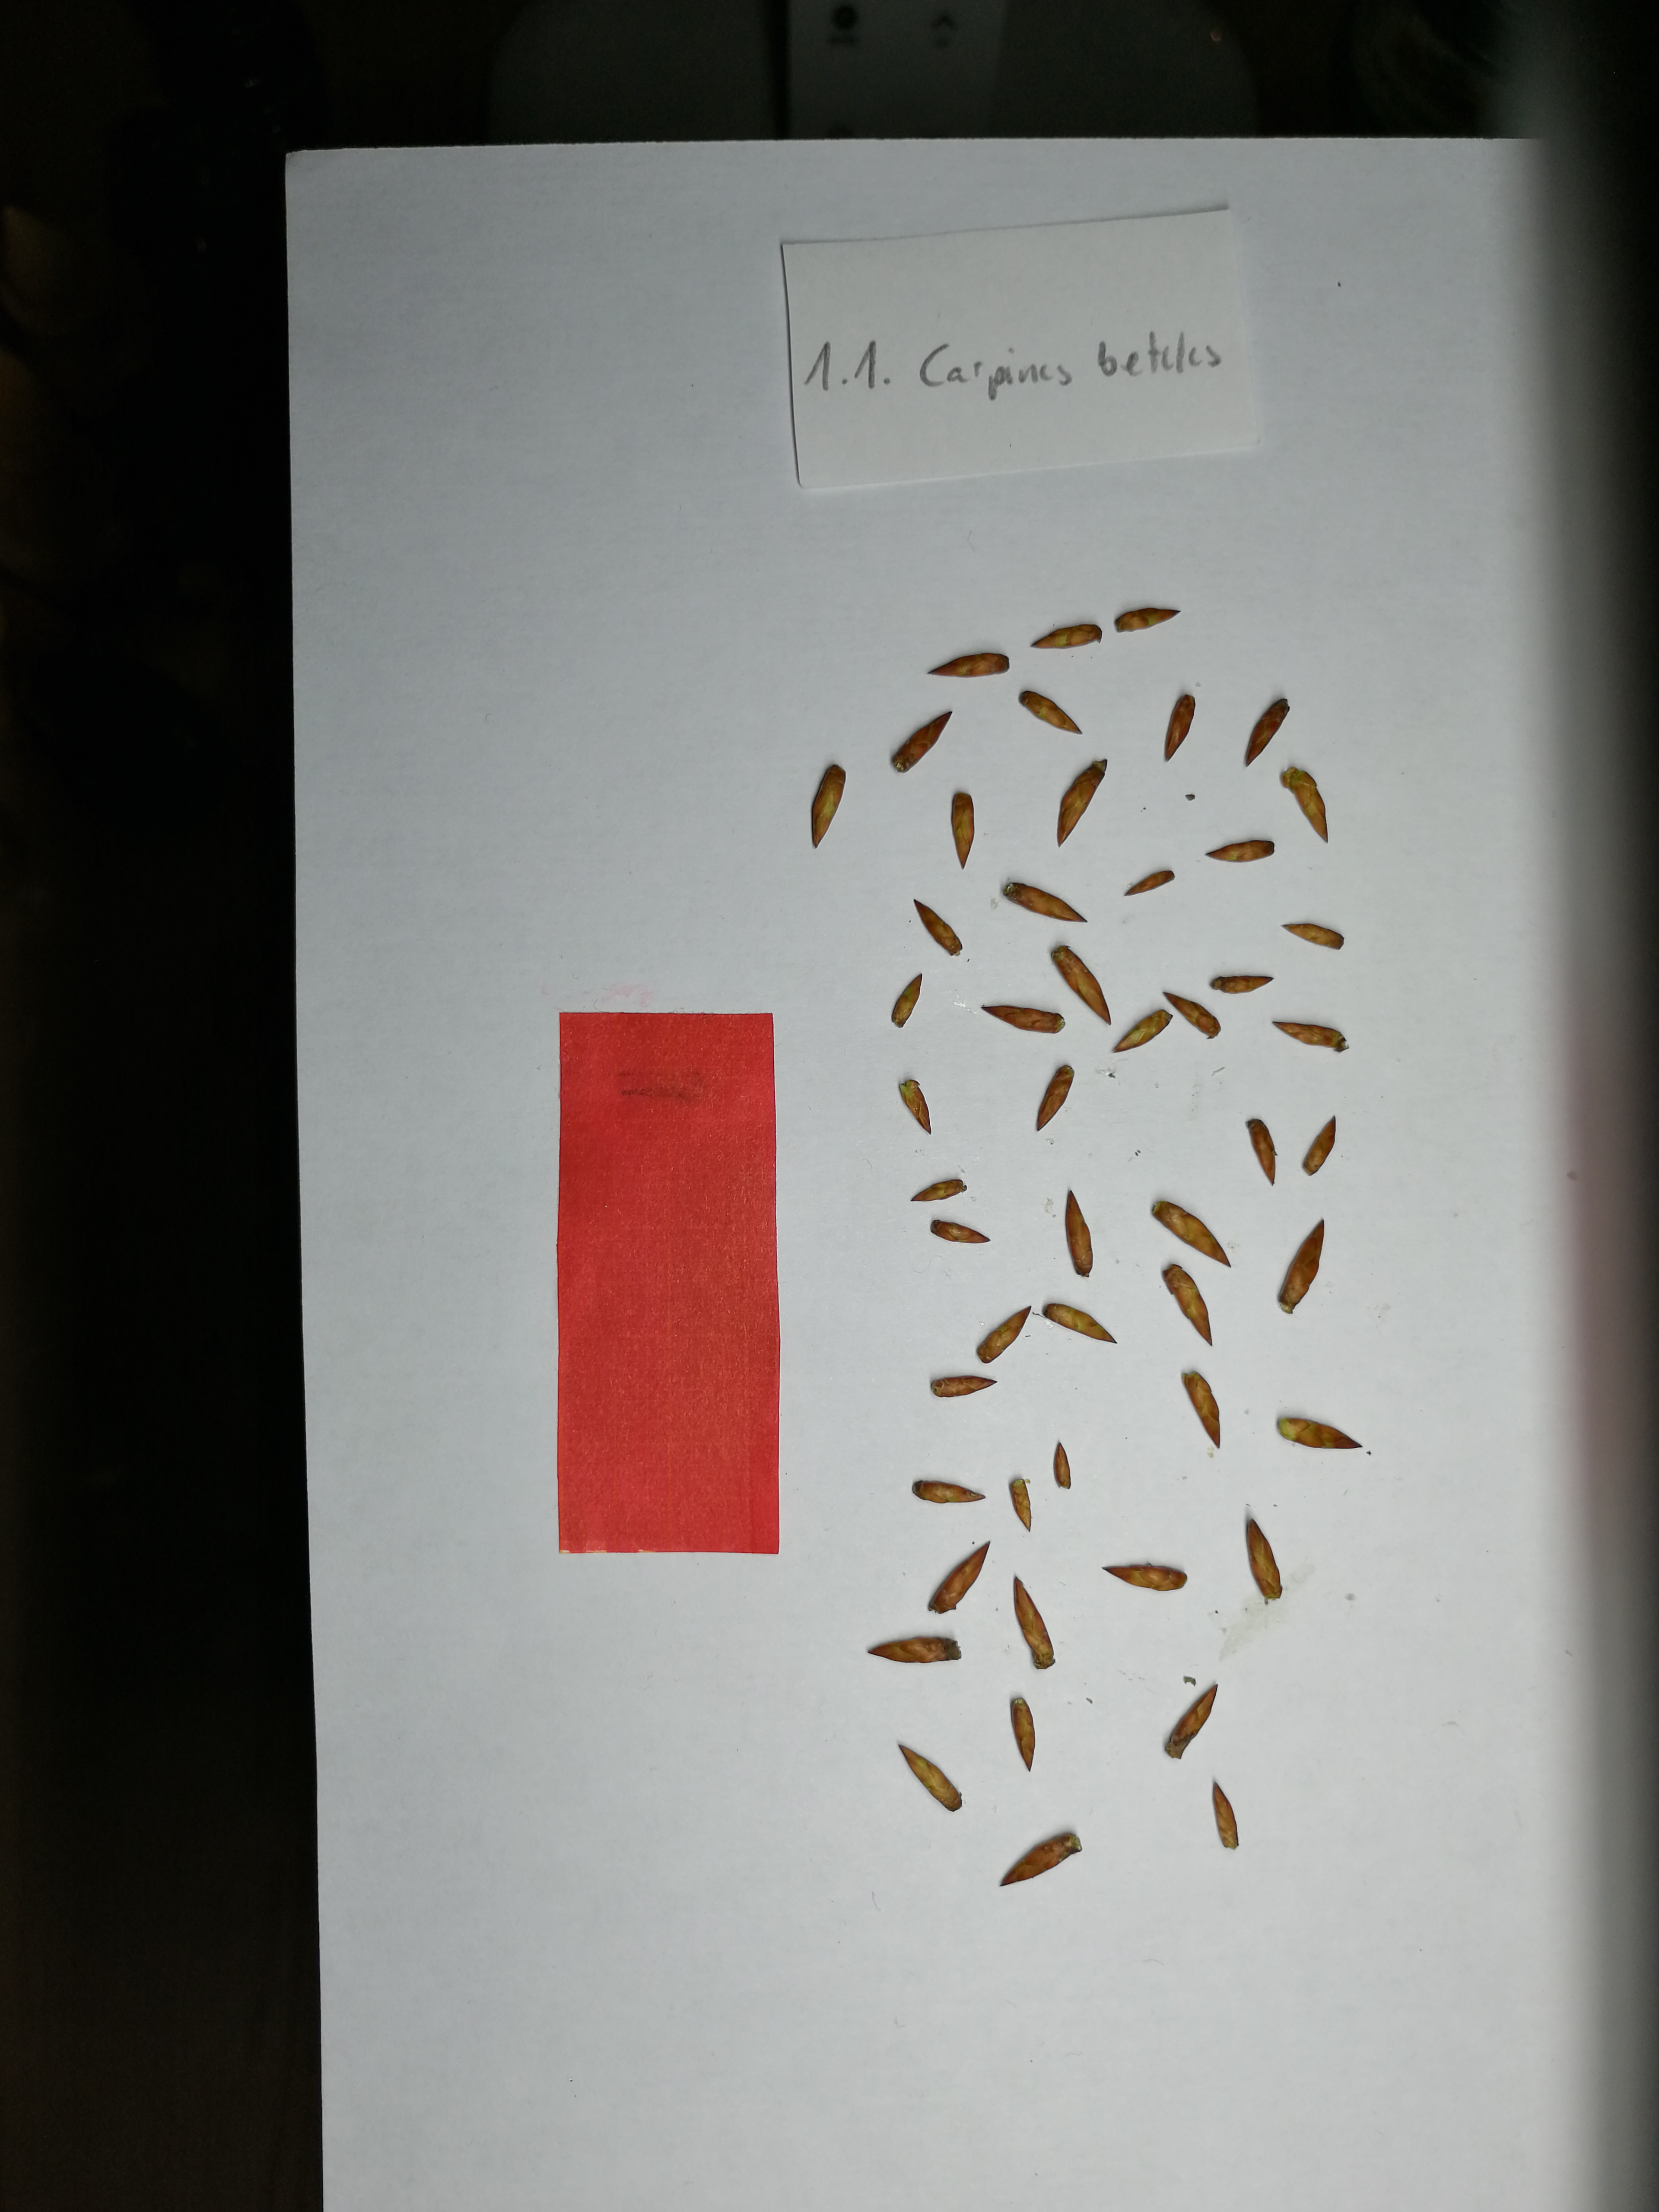 1.1. Carpinus betulus